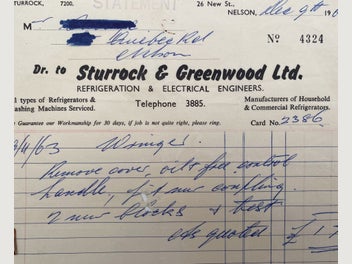 STURROCK, 7200. STATEMENT 26 New St.,
NELSON, Dec 9th 196
M
Quebec Rd
Nelson
Nº 4324
Dr. to Sturrock & Greenwood Ltd.
REFRIGERATION & ELECTRICAL ENGINEERS.
ll types of Refrigerators & Telephone 3885. Manufacturers of Household
ashing Machines Serviced. & Commercial Refrigerators.
Guarantee our Workmanship for 30 days, if job is not quite right, please ring. Card No. 2386
/4/63 Wringer.
Remove cover, oil & free control
handle, fit new coupling.
2 new blocks & test
As quoted £1